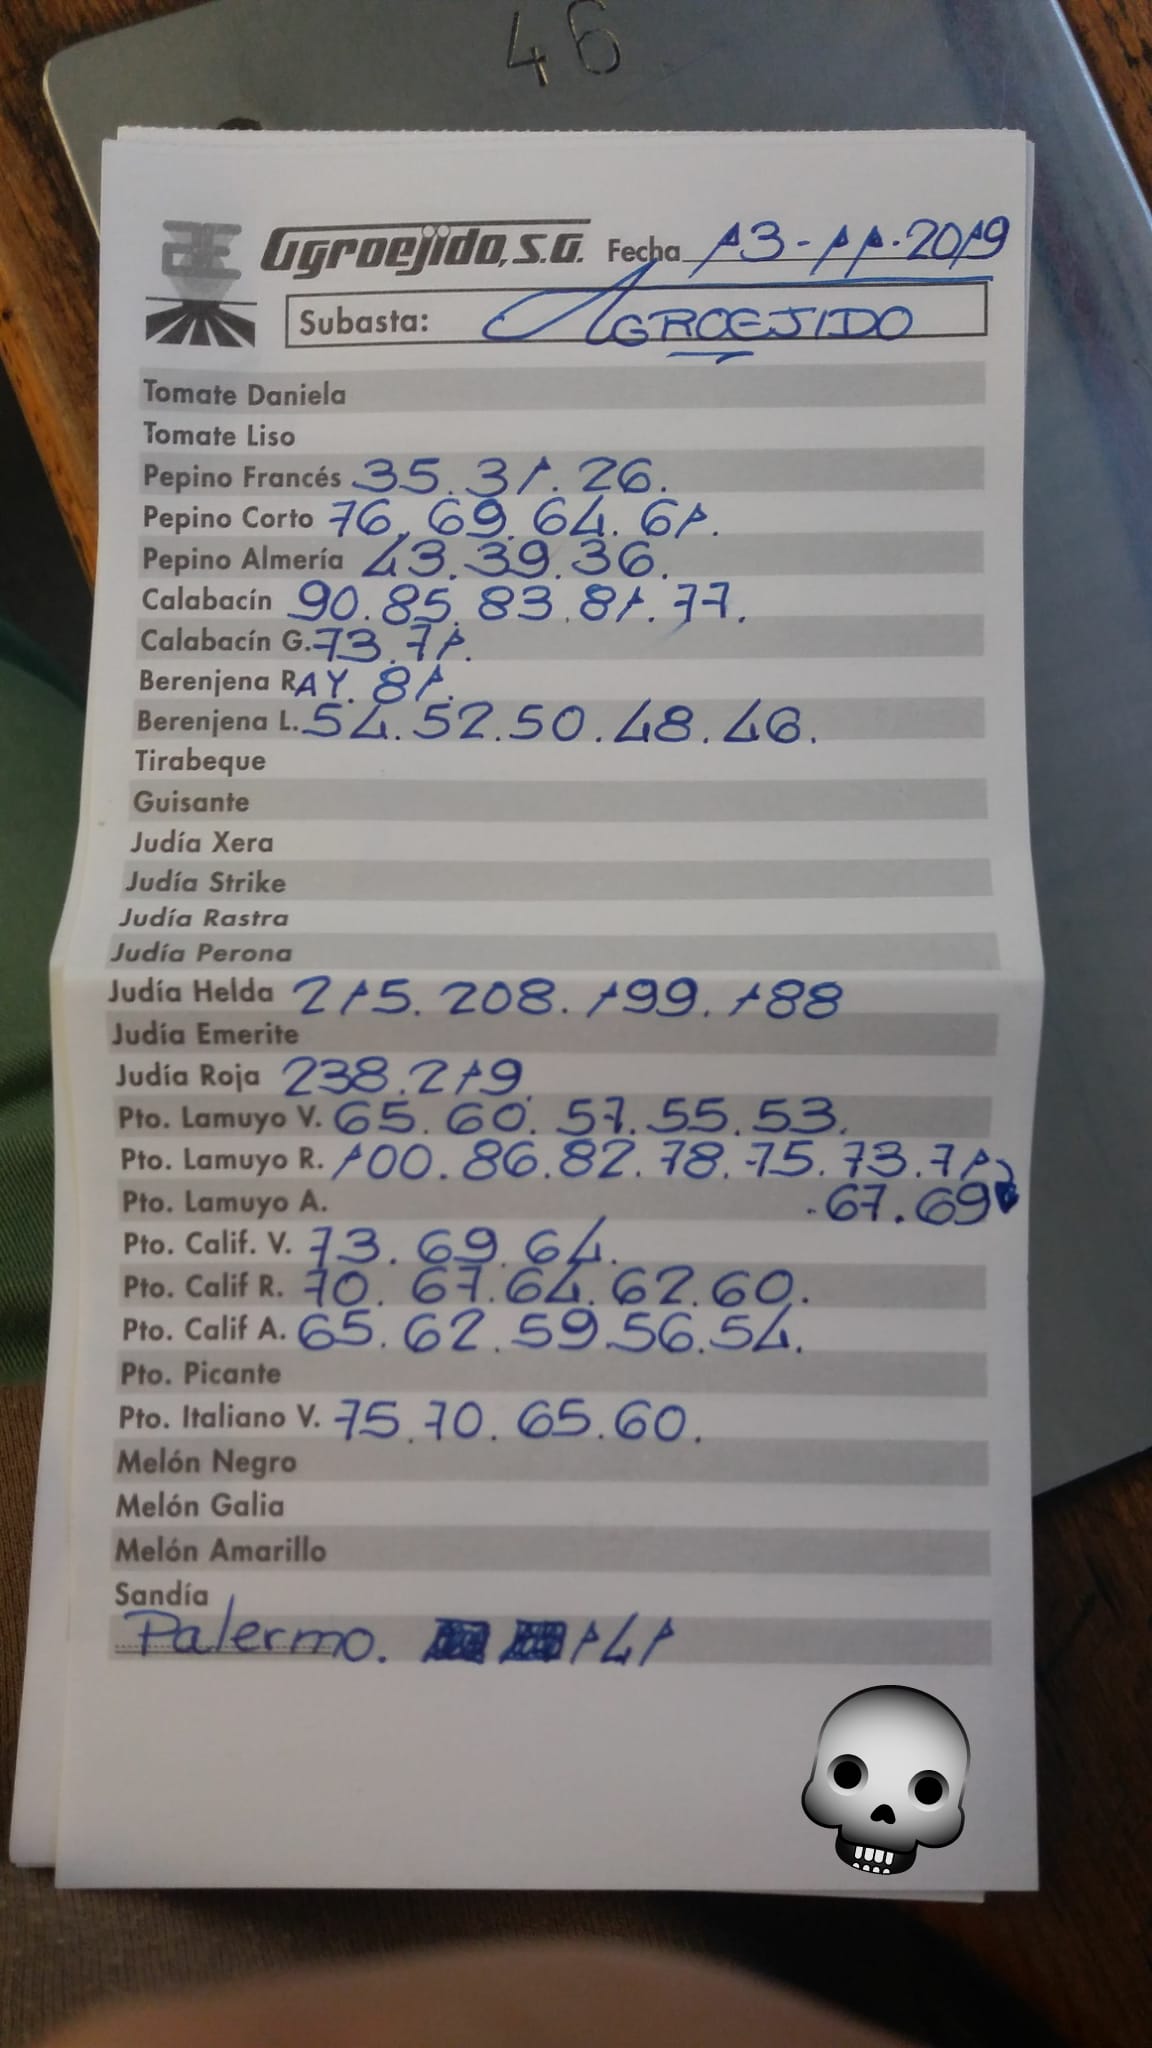 46
Agroejido, S.A. Fecha 13-11-2019
Subasta: AGROEJIDO
Tomate Daniela
Tomate Liso
Pepino Francés 35.31.26.
Pepino Corto 76.69.64.61.
Pepino Almería 43.39.36.
Calabacín 90.85.83.81.77.
Calabacín G. 73.71.
Berenjena RAY. 81.
Berenjena L. 54.52.50.48.46.
Tirabeque
Guisante
Judía Xera
Judía Strike
Judía Rastra
Judía Perona
Judía Helda 215.208.199.188
Judía Emerite
Judía Roja 238.219.
Pto. Lamuyo V. 65.60.57.55.53.
Pto. Lamuyo R. 100.86.82.78.75.73.71
Pto. Lamuyo A. .67.69
Pto. Calif. V. 73.69.64.
Pto. Calif R. 70.67.64.62.60.
Pto. Calif A. 65.62.59.56.54.
Pto. Picante
Pto. Italiano V. 75.70.65.60.
Melón Negro
Melón Galia
Melón Amarillo
Sandía
Palermo. 141